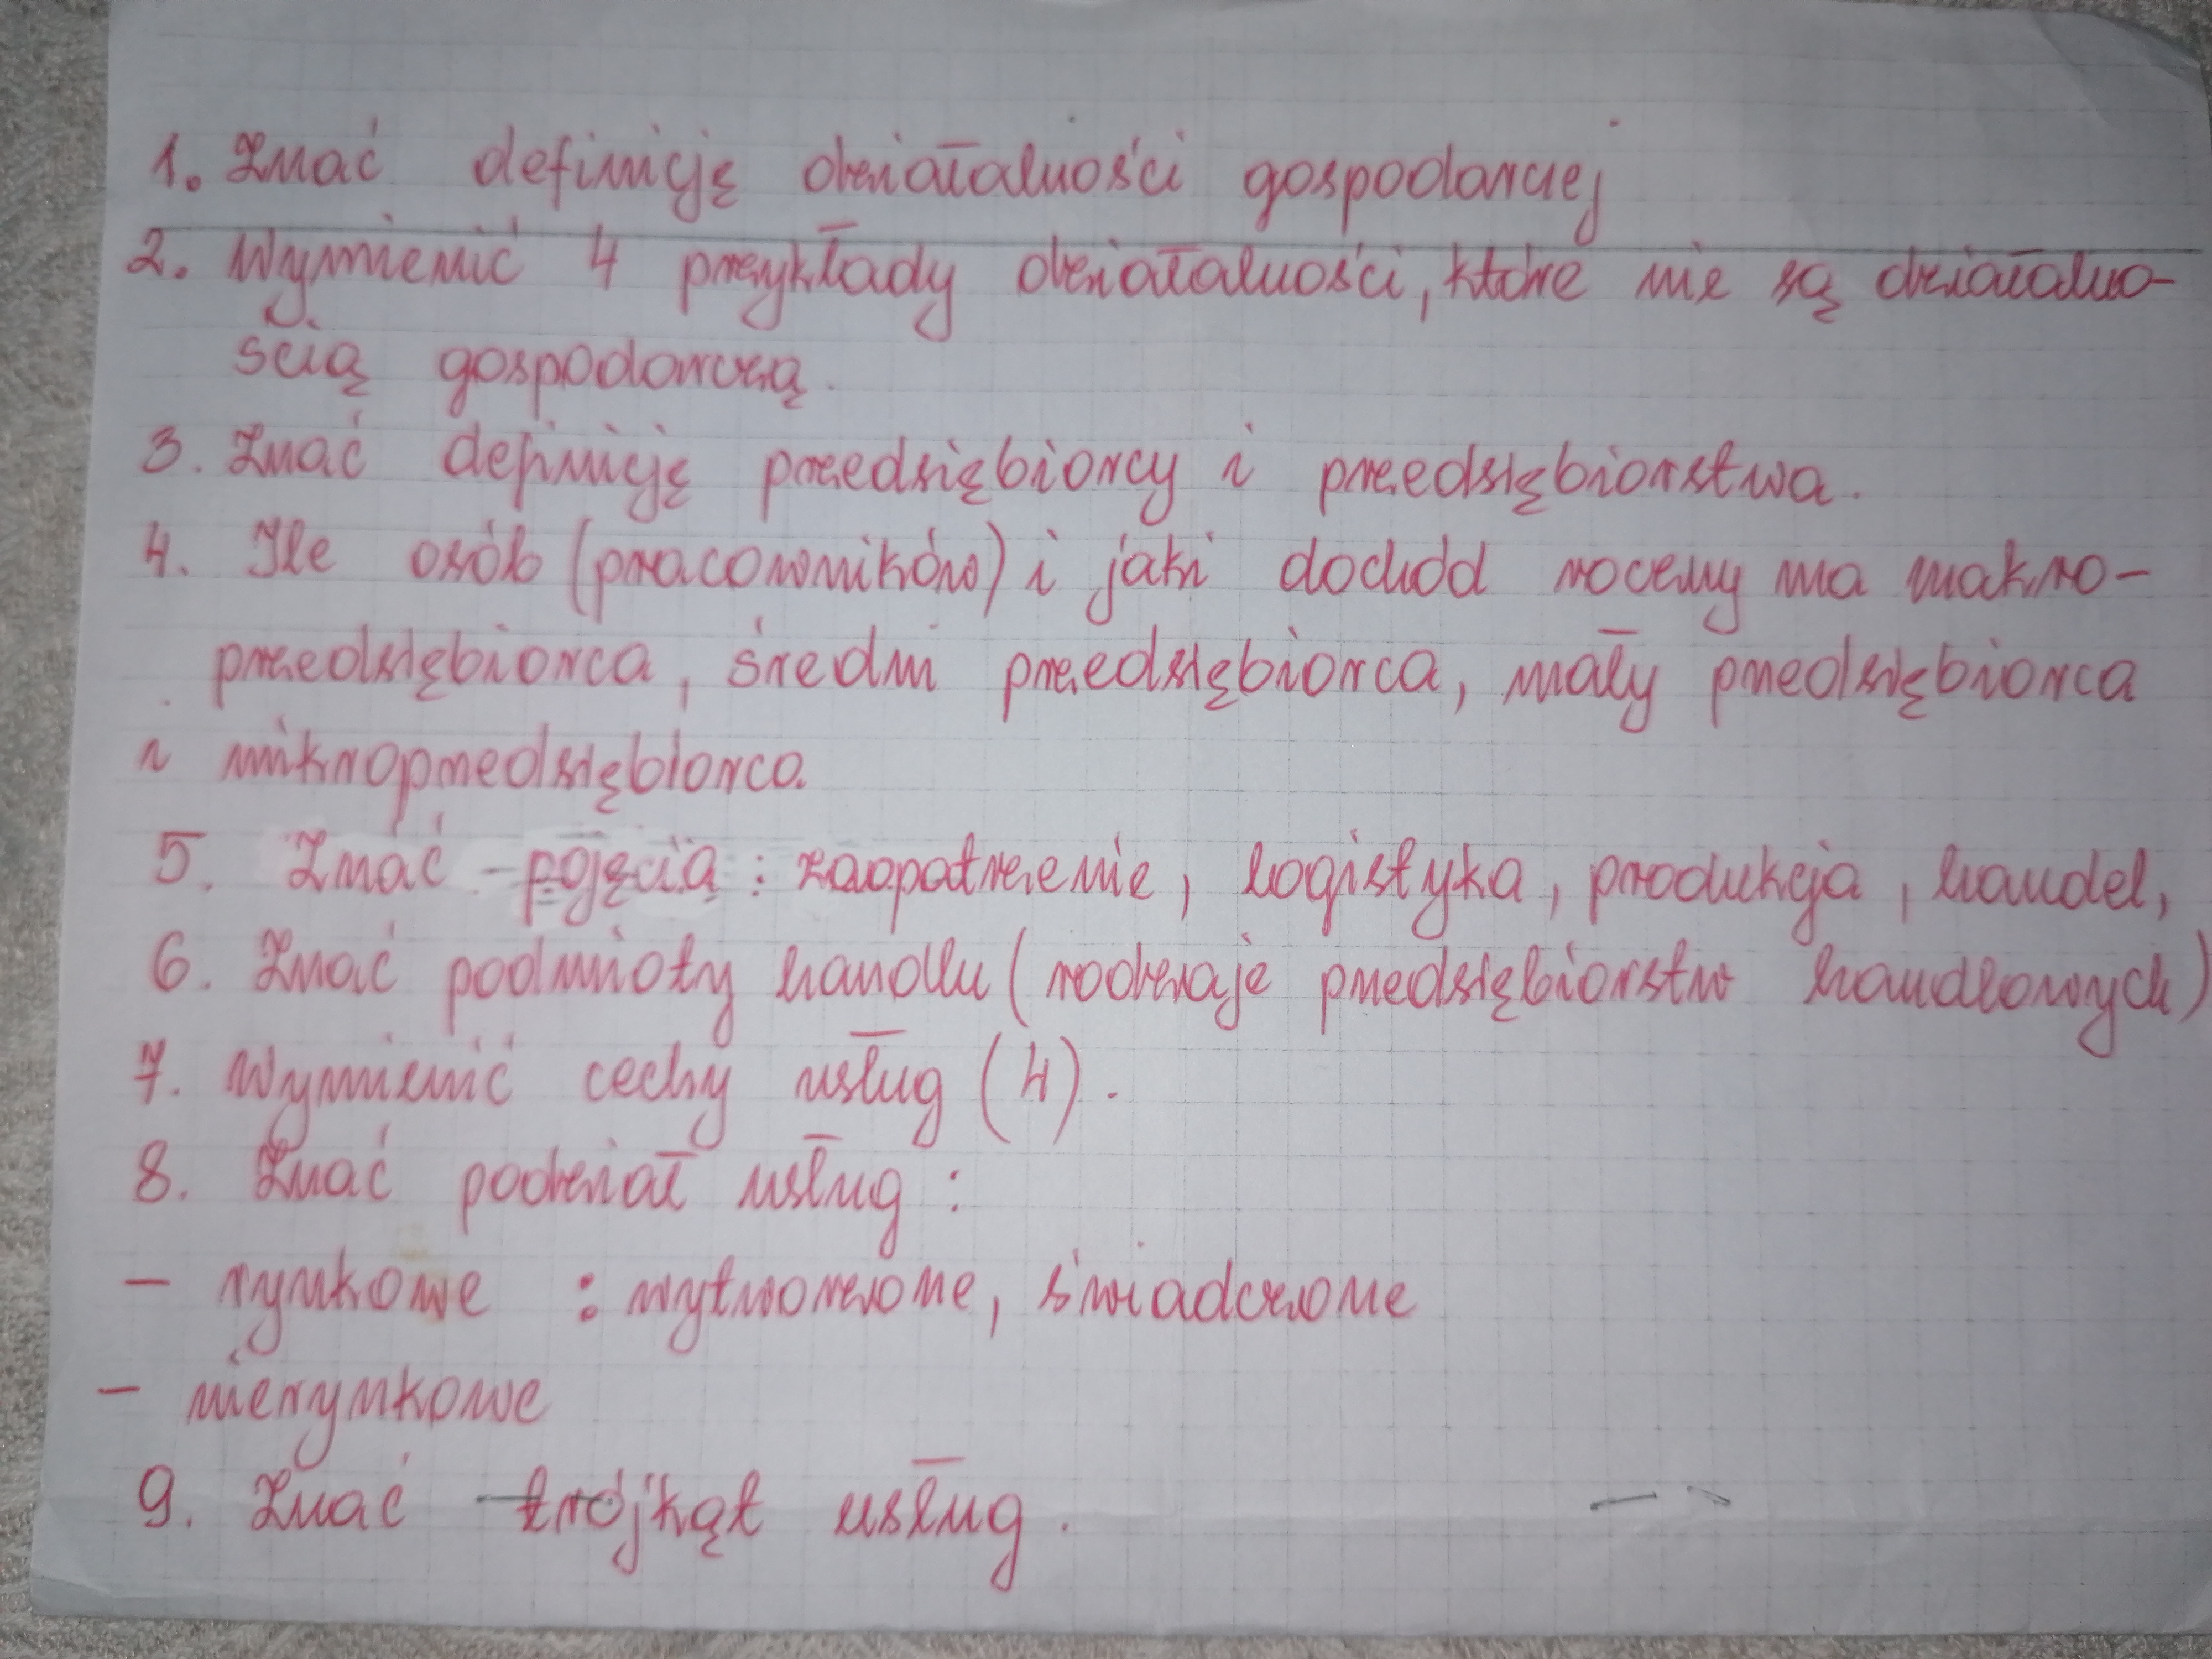 1. Znać definicję działalności gospodarczej
2. Wymienić 4 przykłady działalności, które nie są działalno-
ścią gospodarczą.
3. Znać definicję przedsiębiorcy i przedsiębiorstwa.
4. Ile osób (pracowników) i jaki dochód roczny ma makro-
przedsiębiorca, średni przedsiębiorca, mały przedsiębiorca
i mikroprzedsiębiorca
5. Znać pojęcia : zaopatrzenie, logistyka, produkcja, handel,
6. Znać podmioty handlu (rodzaje przedsiębiorstw handlowych)
7. Wymienić cechy usług (4).
8. Znać podział usług :
- rynkowe : wytworzone, świadczone
- nierynkowe
9. Znać trójkąt usług.